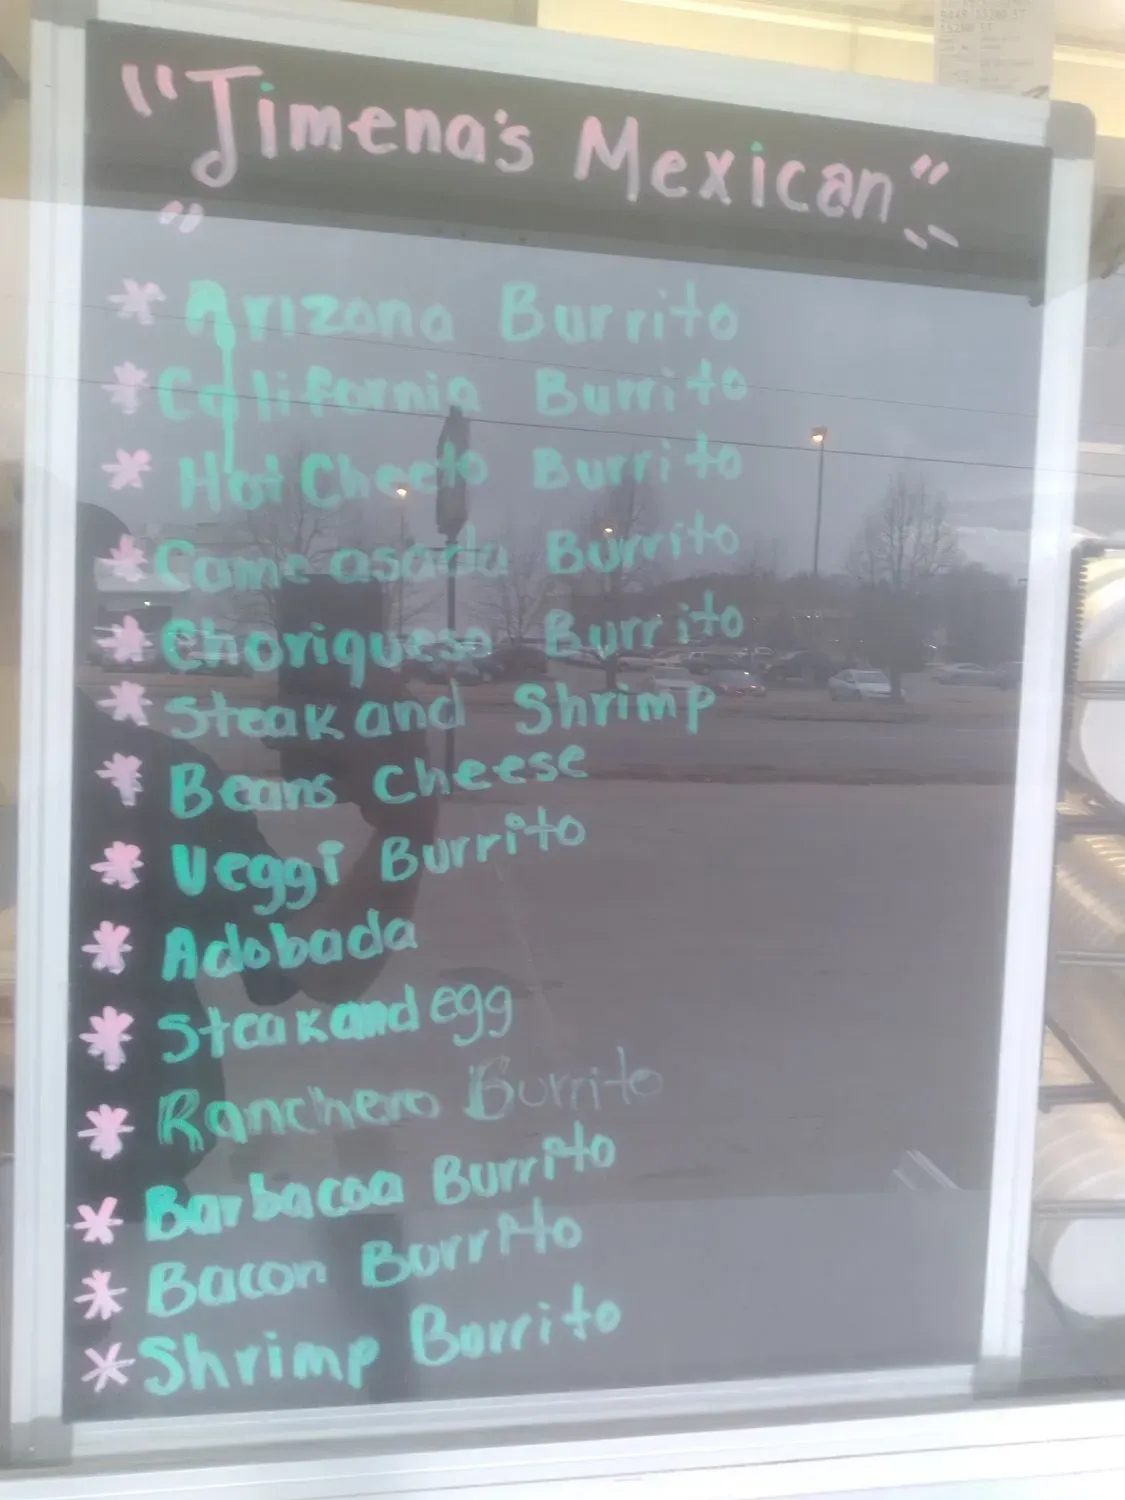 "Jimena's Mexican"
* Arizona Burrito
* California Burrito
* Hot Cheeto Burrito
* Carne asada Burrito
* Choriqueso Burrito
* Steak and Shrimp
* Beans Cheese
* Veggi Burrito
* Adobada
* Steak and egg
* Ranchero Burrito
* Barbacoa Burrito
* Bacon Burrito
* Shrimp Burrito